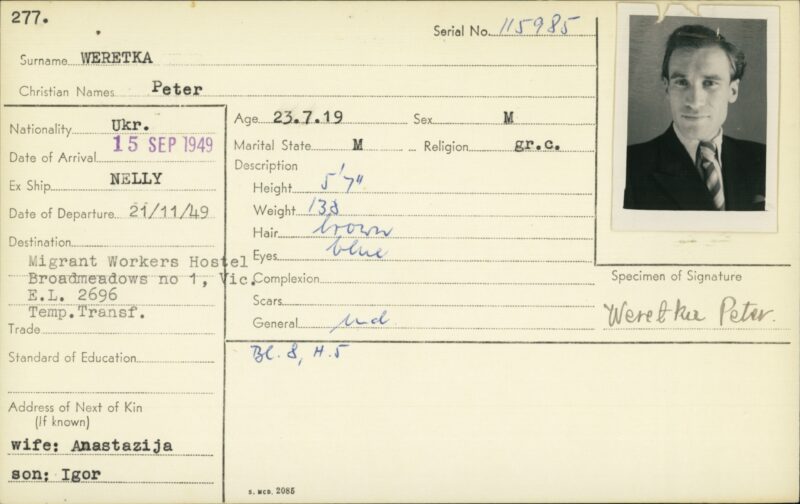 277.
Serial No. 115985
Surname WERETKA
Christian Names Peter
Nationality Ukr.
Date of Arrival 15 SEP 1949
Ex Ship NELLY
Date of Departure 21/11/49
Destination
Migrant Workers Hostel
Broadmeadows no 1, Vic.
E.L. 2696
Temp.Transf.
Trade
Standard of Education
Address of Next of Kin
(If known)
wife: Anastazija
son: Igor
Age 23.7.19 Sex M
Marital State M Religion gr.c.
Description
Height 5'7"
Weight 138
Hair brown
Eyes blue
Complexion
Scars
General
Bl. 8, H.5
Specimen of Signature
Weretka Peter.
S. MCD. 2085